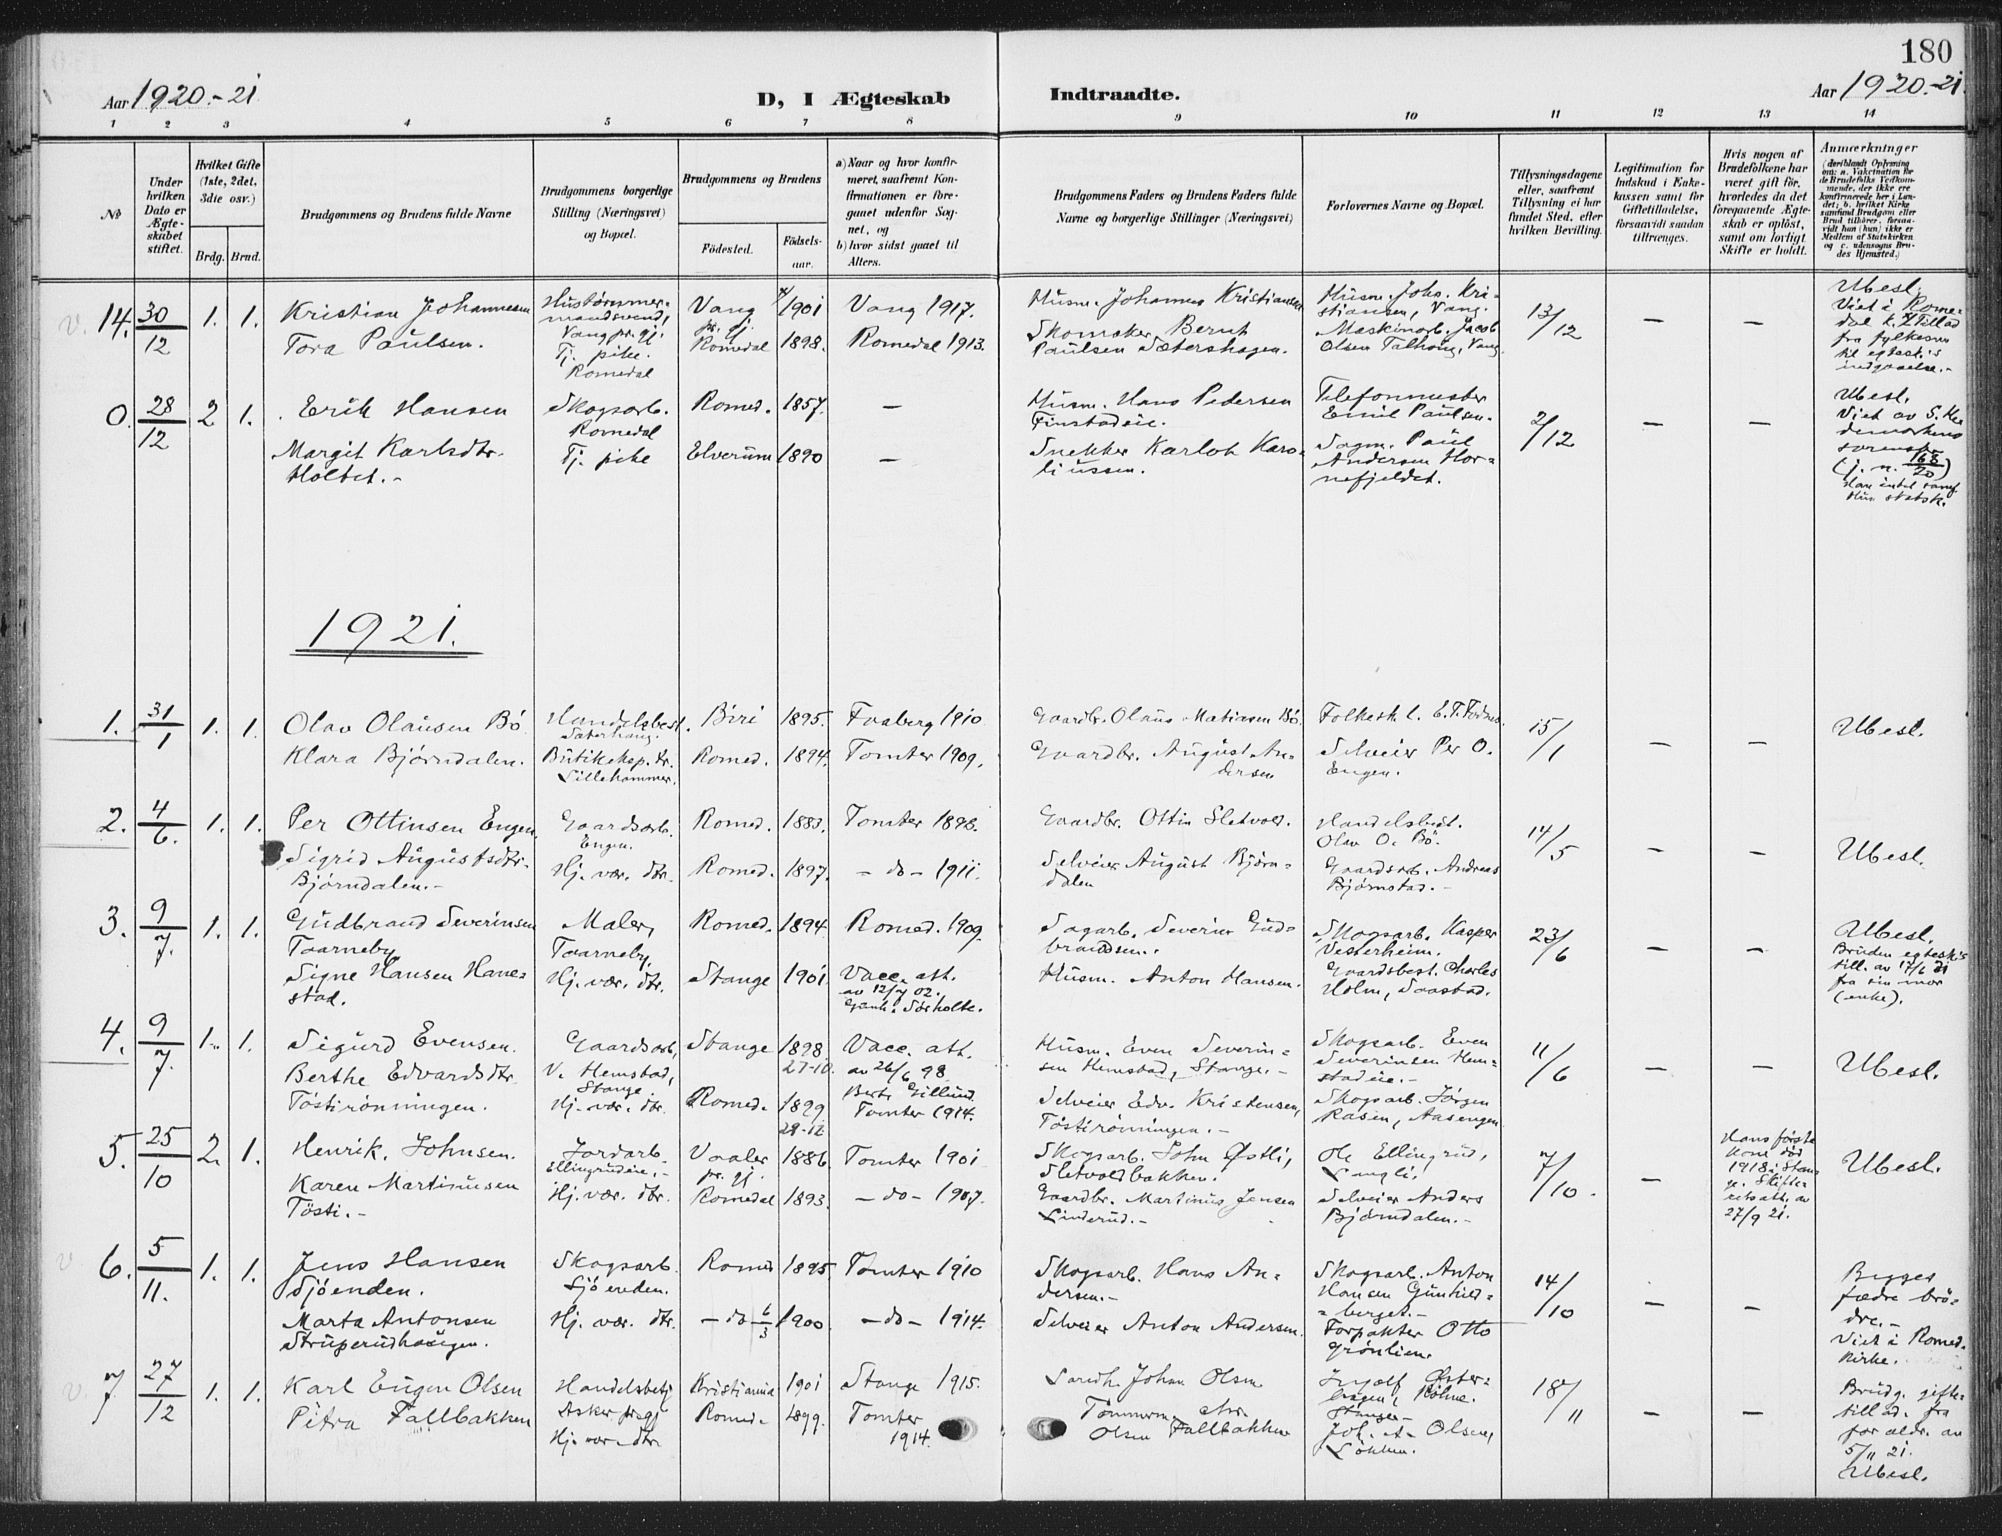 180
Aar 1920.-21.
D, I Ægteskab
Indtraadte.
Aar 1920.-21.
1 2 3 4 5 6 7 8 9 10 11 12 13 14
No
Under hvilken Dato er Ægteskabet stiftet.
Hvilket Gifte (1ste, 2det, 3die osv.)
Brdg. Brud.
Brudgommens og Brudens fulde Navne
Brudgommens borgerlige Stilling (Næringsvei) og Bopæl.
Brudgommens og Brudens
Fødested.
Fødselsaar.
a) Naar og hvor konfirmeret, saafremt Konfirmationen er foregaaet udenfor Sognet, og
b) hvor sidst gaaet til Alters.
Brudgommens Faders og Brudens Faders fulde Navne og borgerlige Stillinger (Næringsvei)
Forlovernes Navne og Bopæl.
Tillysningsdagene eller, saafremt Tillysning ei har fundet Sted, efter hvilken Bevilling.
Legitimation for Indskud i Enkekassen samt for Giftetilladelse, forsaavidt saadan tiltrænges.
Hvis nogen af Brudefolkene har været gift før, hvorledes da det foregaaende Ægteskab er opløst, samt om lovligt Skifte er holdt.
Anmærkninger
14. 30/12 1. 1.
Kristian Johannesen
Tora Paulsen.
Vang pr. gj.
Tj. pike.
Romedal
Vang pr. gj. 1901
Romedal 1898.
Vang 1917.
Romedal 1913.
Husm. Johannes Kristiansen
Skomaker Bernt
Paulsen Sætershagen.
Husm. Johs. Kri-
stiansen, Vang.
Maskinarb. Jacob
Olsen Talhoug, Vang
13/12
—
—
Ubesl.
Viet i Rome-
dal k.
fra fylkesm
til egtesk.s
indgaaelse.-
0. 28/12 2 1.
Erik Hansen
Margit Karlsdtr.
Holtet.-
Skogsarb.
Romedal
Tj. pike
Romed. 1857.
Elverum 1890
—
—
Husm. Hans Pedersen
Finstadeie.
Snekker Karlot Karo-
liussen.
Telefonmester
Emil Paulsen.
Sagm. Paul
Andersen Hor-
nefjeldet.
2/12
—
—
Ubesl.
Viet av S. He
demarkens
(j. n. 168/20)
1921.
1. 31/1 1. 1.
Olav Olausen Bö
Klara Bjørndalen.
Handelsbest.
Sæterhaug.
Lillehammer.
Biri 1895.
Romed. 1894.
Faaberg 1910
Tomter 1909.
Gaardbr. Olaus Matiasen Bö.
Gaardbr. August An-
dersen
Folkesk. l. E. T. Fodnes
Selveier Per O.
Engen.
15/1
—
—
Ubesl.
2. 4/6. 1. 1.
Per Ottinsen Engen.
Sigrid Augustsdtr.
Bjørndalen.-
Gaardsarb.
Engen.
Hj. vær. dtr.
Romed. 1883.
Romed. 1897.
Tomter 1898.
- do - 1911.
Gaardbr. Ottin Sletvold.
Selveier August Bjørn-
dalen
Handelsbest.
Olav O. Bö.
Gaardsarb. Andreas
Bjørnstad.-
14/5
—
—
Ubesl.
3. 9/7. 1. 1.
Gudbrand Severinsen
Taarneby
Signe Hansen Hane-
stad.
Maler,
Taarneby.
Hj. vær. dtr.
Romed. 1894
Stange 1901
Romed. 1909.
Vacc. att.
av 12/7 02.
Gunh. Sørholte.
Sagarb. Severin Gud-
brandsen.
Husm. Anton Hansen.
Skogsarb. Kasper
Vesterheim.
Gaardsbest. Charles
Holm, Saastad.
23/6
—
—
Ubesl.
Bruden egtesk.s
till. av 17/6 21
fra sin mor
(enke).
4. 9/7. 1. 1.
Sigurd Evensen.
Berthe Edvardsdtr.
Töstirönningen.
Gaardsarb,
V. Hemstad,
Stange
Hj. vær. dtr.
Stange 1898
27-10.
Romed. 1899
29-12
Vacc. att.
av 26/6 98
Berth. Gillund
Tomter 1914.
Husm. Even Severin-
sen Hemstad, Stange.-
Selveier Edv. Kristensen,
Töstirönningen.-
Skogsarb. Even
Severinsen Hem-
stadeie.-
Skogsarb. Jørgen
Rasen, Aasengen
11/6
—
—
Ubesl.
5. 25/10 2. 1.
Henrik Johnsen.
Karen Martinusen
Tösti.-
Jordarb.
Ellingrudeie.-
Hj. vær. dtr.
Vaaler pr. gj. 1886
Romedal 1893.
Tomter 1901
- do - 1907.
Skogsarb. John Østli,
Sletvoldbakken.
Gaardbr. Martinus Jensen
Linderud.-
Ole Ellingrud,
Langli.
Selveier Anders
Bjørndalen.-
7/10.
—
Hans første
kone död
1918 i Stan-
ge. Skifte-
retsatt. av
27/9 21.
Ubesl.
6. 5/11. 1. 1.
Jens Hansen
Sjöenden.
Marta Antonsen
Struperudhaugen.
Skogsarb.
Sjöenden.
Hj. vær. dtr.
Romed 1895
- do - 6/3 1900.
Tomter 1910
- do - 1914.
Skogsarb. Hans An-
dersen.-
Selveier Anton Andersen.
Skogsarb. Anton
Hansen Gunhild-
berget.-
Forpakter Otto
Grönlien.
14/10
—
—
Begges
fædre brö-
dre.-
Viet i Romed.
kirke.
7. 27/12 1. 1.
Karl Eugen Olsen
Petra Fallbakken
Handelsbetj.
Asker pr. gj.
Hj. vær. dtr.
Kristiania 1901
Romed. 1899.
Stange 1915.
Tomter
1914.
Johan Olsen
Olsen Fallbakken
Ingolf Øster-
Stange-
Joh. A. Olsen,
Lökken.
18/11
—
—
Brudg. gifte-
tillad. fra
foreldr. av
5/11 21.
Ubesl.